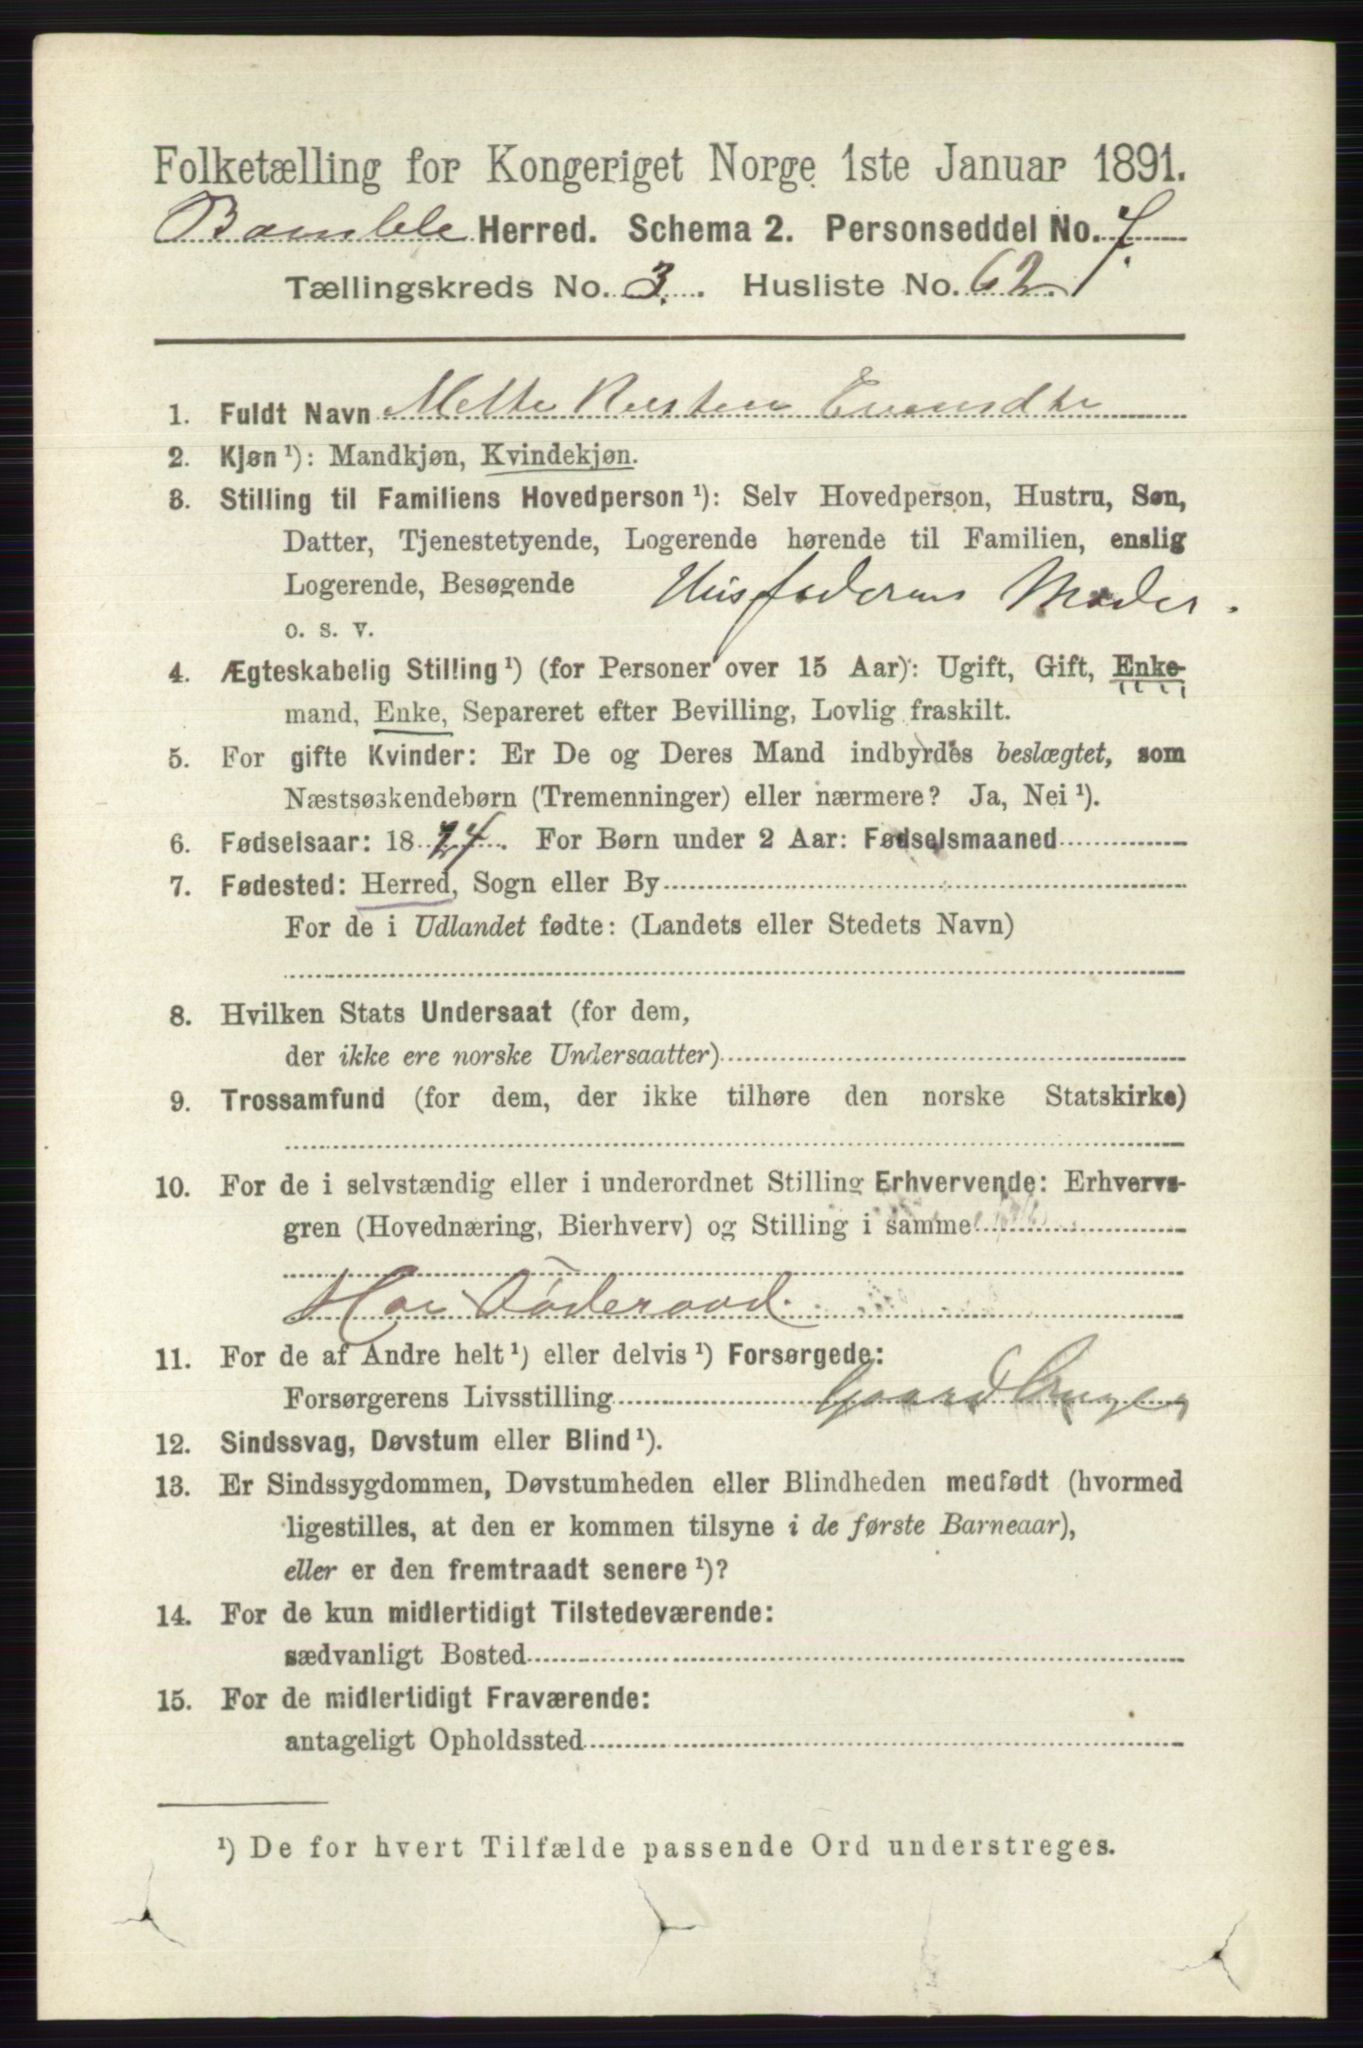 Folketælling for Kongeriget Norge 1ste Januar 1891.
Bamble Herred. Schema 2. Personseddel No. 7.
Tællingskreds No. 3. Husliste No. 62.
1. Fuldt Navn Mette
2. Kjøn ¹): Mandkjøn, Kvindekjøn.
3. Stilling til Familiens Hovedperson ¹): Selv Hovedperson, Hustru, Søn,
Datter, Tjenestetyende, Logerende hørende til Familien, enslig
Logerende, Besøgende Husfaderens Moder.
o. s. v.
4. Ægteskabelig Stilling ¹) (for Personer over 15 Aar): Ugift, Gift, Enke-
mand, Enke, Separeret efter Bevilling, Lovlig fraskilt.
5. For gifte Kvinder: Er De og Deres Mand indbyrdes beslægtet, som
Næstsøskendebørn (Tremenninger) eller nærmere? Ja, Nei ¹).
6. Fødselsaar: 1824. For Børn under 2 Aar: Fødselsmaaned
7. Fødested: Herred, Sogn eller By
For de i Udlandet fødte: (Landets eller Stedets Navn)
8. Hvilken Stats Undersaat (for dem,
der ikke ere norske Undersaatter)
9. Trossamfund (for dem, der ikke tilhøre den norske Statskirke)
10. For de i selvstændig eller i underordnet Stilling Erhvervende: Erhvervs-
gren (Hovednæring, Bierhverv) og Stilling i samme
Har Føderaad.
11. For de af Andre helt ¹) eller delvis ¹) Forsørgede:
Forsørgerens Livsstilling Gaardbruger
12. Sindssvag, Døvstum eller Blind ¹).
13. Er Sindssygdommen, Døvstumheden eller Blindheden medfødt (hvormed
ligestilles, at den er kommen tilsyne i de første Barneaar),
eller er den fremtraadt senere ¹)?
14. For de kun midlertidigt Tilstedeværende:
sædvanligt Bosted
15. For de midlertidigt Fraværende:
antageligt Opholdssted
¹) De for hvert Tilfælde passende Ord understreges.